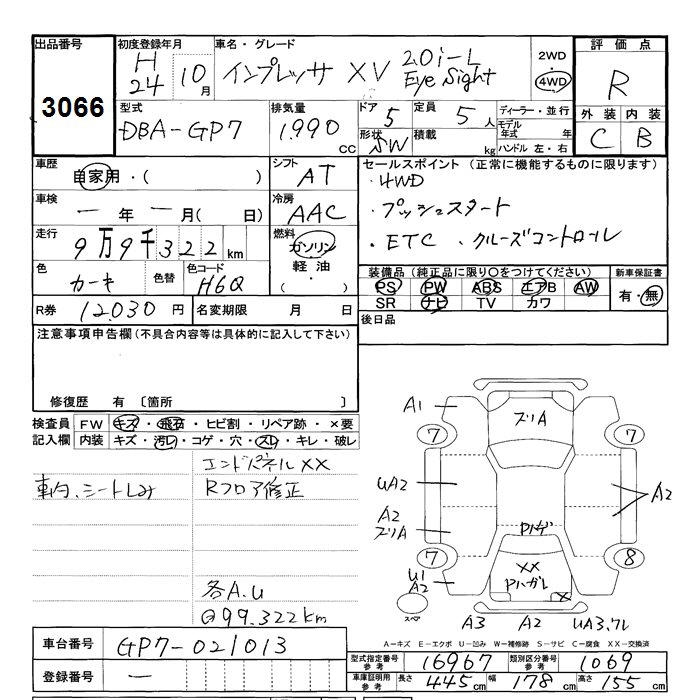 出品番号 初度登録年月 車名・グレード 評価点
3066 H24 10月 インプレッサ XV 2.0i-L Eye Sight 2WD 4WD R
型式 排気量 ドア 5 定員 5人 ディーラー・並行 外装 内装
DBA-GP7 1990cc 形状 SW 積載 kg モデル年式 年 ハンドル 左・右 C B
車歴 自家用・( ) シフト AT セールスポイント (正常に機能するものに限ります)
・4WD
車検 ー年 ー月( 日) 冷房 AAC ・プッシュスタート
走行 9万9千322km 燃料 ガソリン・軽油・( ) ・ETC ・クルーズコントロール
色 カーキ 色替 色コード H6Q 装備品 (純正品に限り○をつけてください) 新車保証書
PS PW ABS エアB AW 有・無
R券 12030円 名変期限 月 日 SR ナビ TV カワ
注意事項申告欄(不具合内容等は具体的に記入して下さい) 後日品
修復歴 有 〔箇所 〕
検査員 FW キズ・飛石・ヒビ割・リペア跡・×要
記入欄 内装 キズ・汚レ・コゲ・穴・スレ・キレ・破レ
エンドパネルXX
車内、シートしみ Rフロア修正
各A.U
99.322km
A1 ズリA
7 7
UA2 A2
A2
ズリA Pハゲ
7 8
U1
A2 XX
Pハガレ X
スペア A3 A2 UA3.ワレ
A-キズ E-エクボ U-凹み W-補修跡 S-サビ C-腐食 XX-交換済
車台番号 GP7-021013
型式指定番号 参考 16967 類別区分番号 参考 1069
登録番号 ー 車庫証明用 参考 長さ 445cm 幅 178cm 高さ 155cm